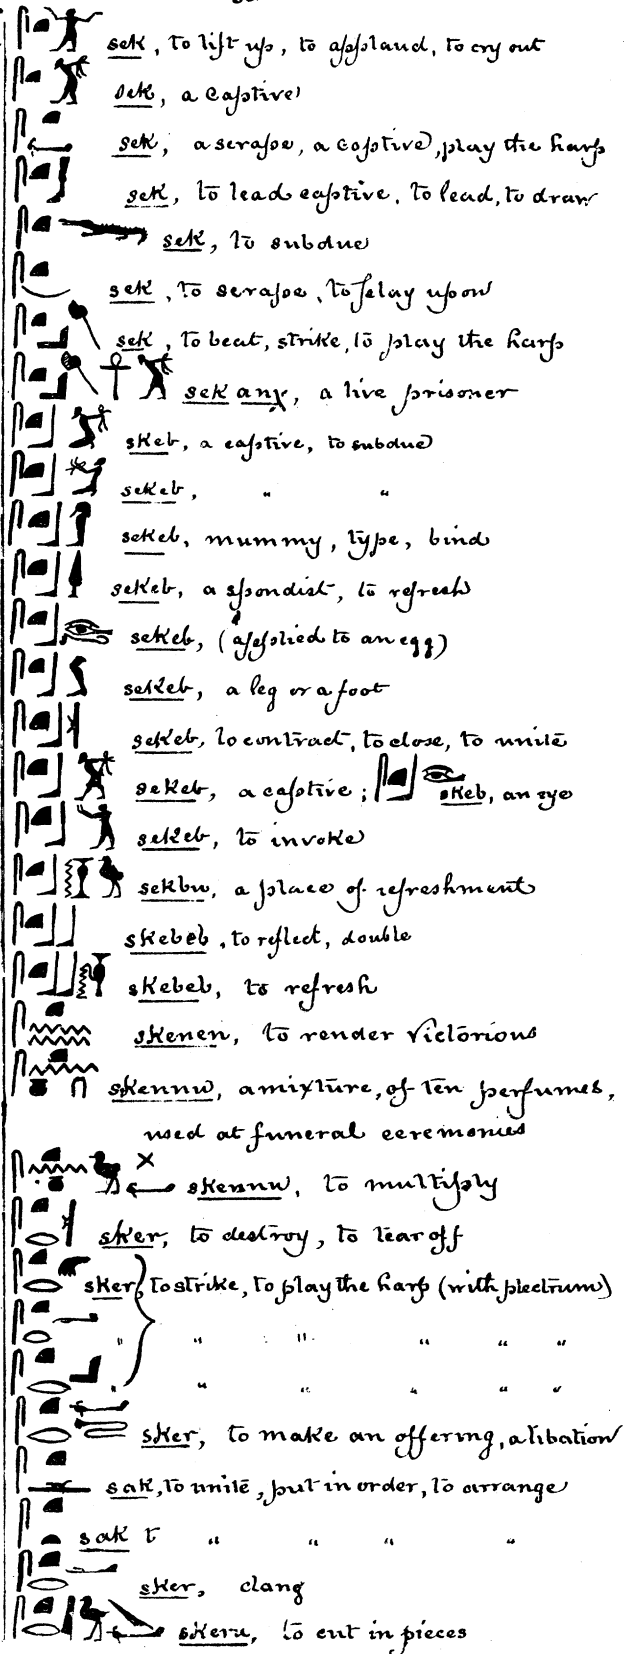 sek, to lift up, to applaud, to cry out
sek, a captive
sek, a scrape, a captive, play the harp
sek, to lead captive, to lead, to draw
sek, to subdue
sek, to scrape, to play upon
sek, to beat, strike, to play the harp
sek anχ, a live prisoner
skeb, a captive, to subdue
sekeb, " "
sekeb, mummy, type, bind
sekeb, a spondist, to refresh
sekeb, (applied to an egg)
sekeb, a leg or a foot
sekeb, to contract, to close, to unite
sekeb, a captive; skeb, an eye
sekeb, to invoke
sekbu, a place of refreshment
skebeb, to reflect, double
skebeb, to refresh
skenen, to render victorious
skennu, a mixture, of ten perfumes,
used at funeral ceremonies
skennu, to multiply
sker, to destroy, to tear off
sker, to strike, to play the harp (with plectrum)
" " " " " "
" " " " " "
sker, to make an offering, a libation
sak, to unite, put in order, to arrange
sak t " " " "
sker, clang
skeru, to cut in pieces